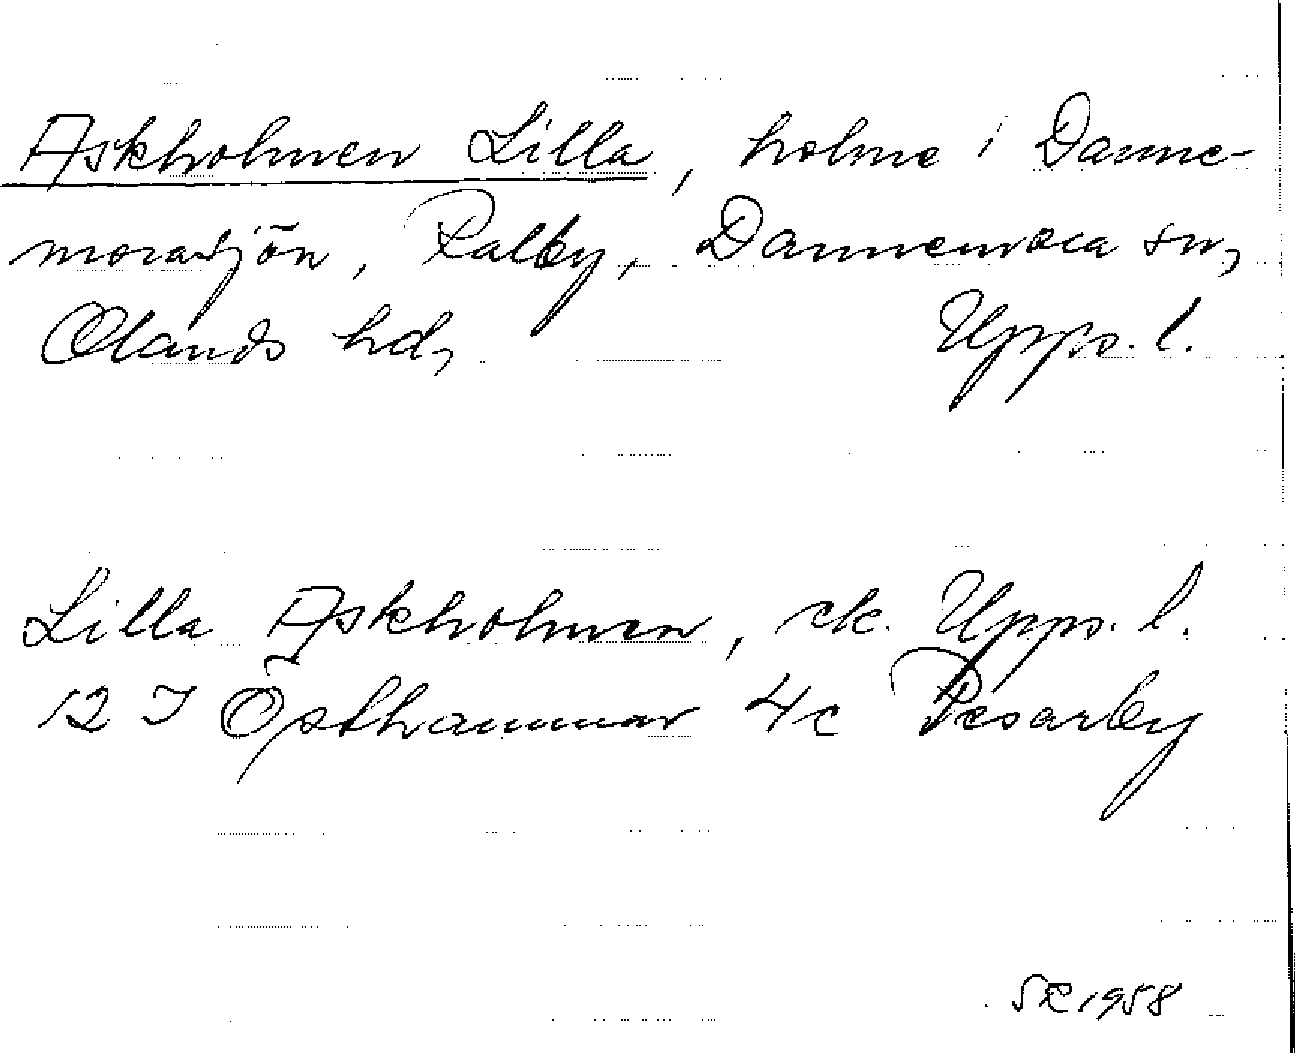 Askholmen Lilla, holme i Danne-
morasjön, Ralby, Dannemora sn,
Olands hd, Upps. l.
Lilla Askholmen, ek. Upps. l.
12 I Östhammar 4c Pesarby
SR 1958